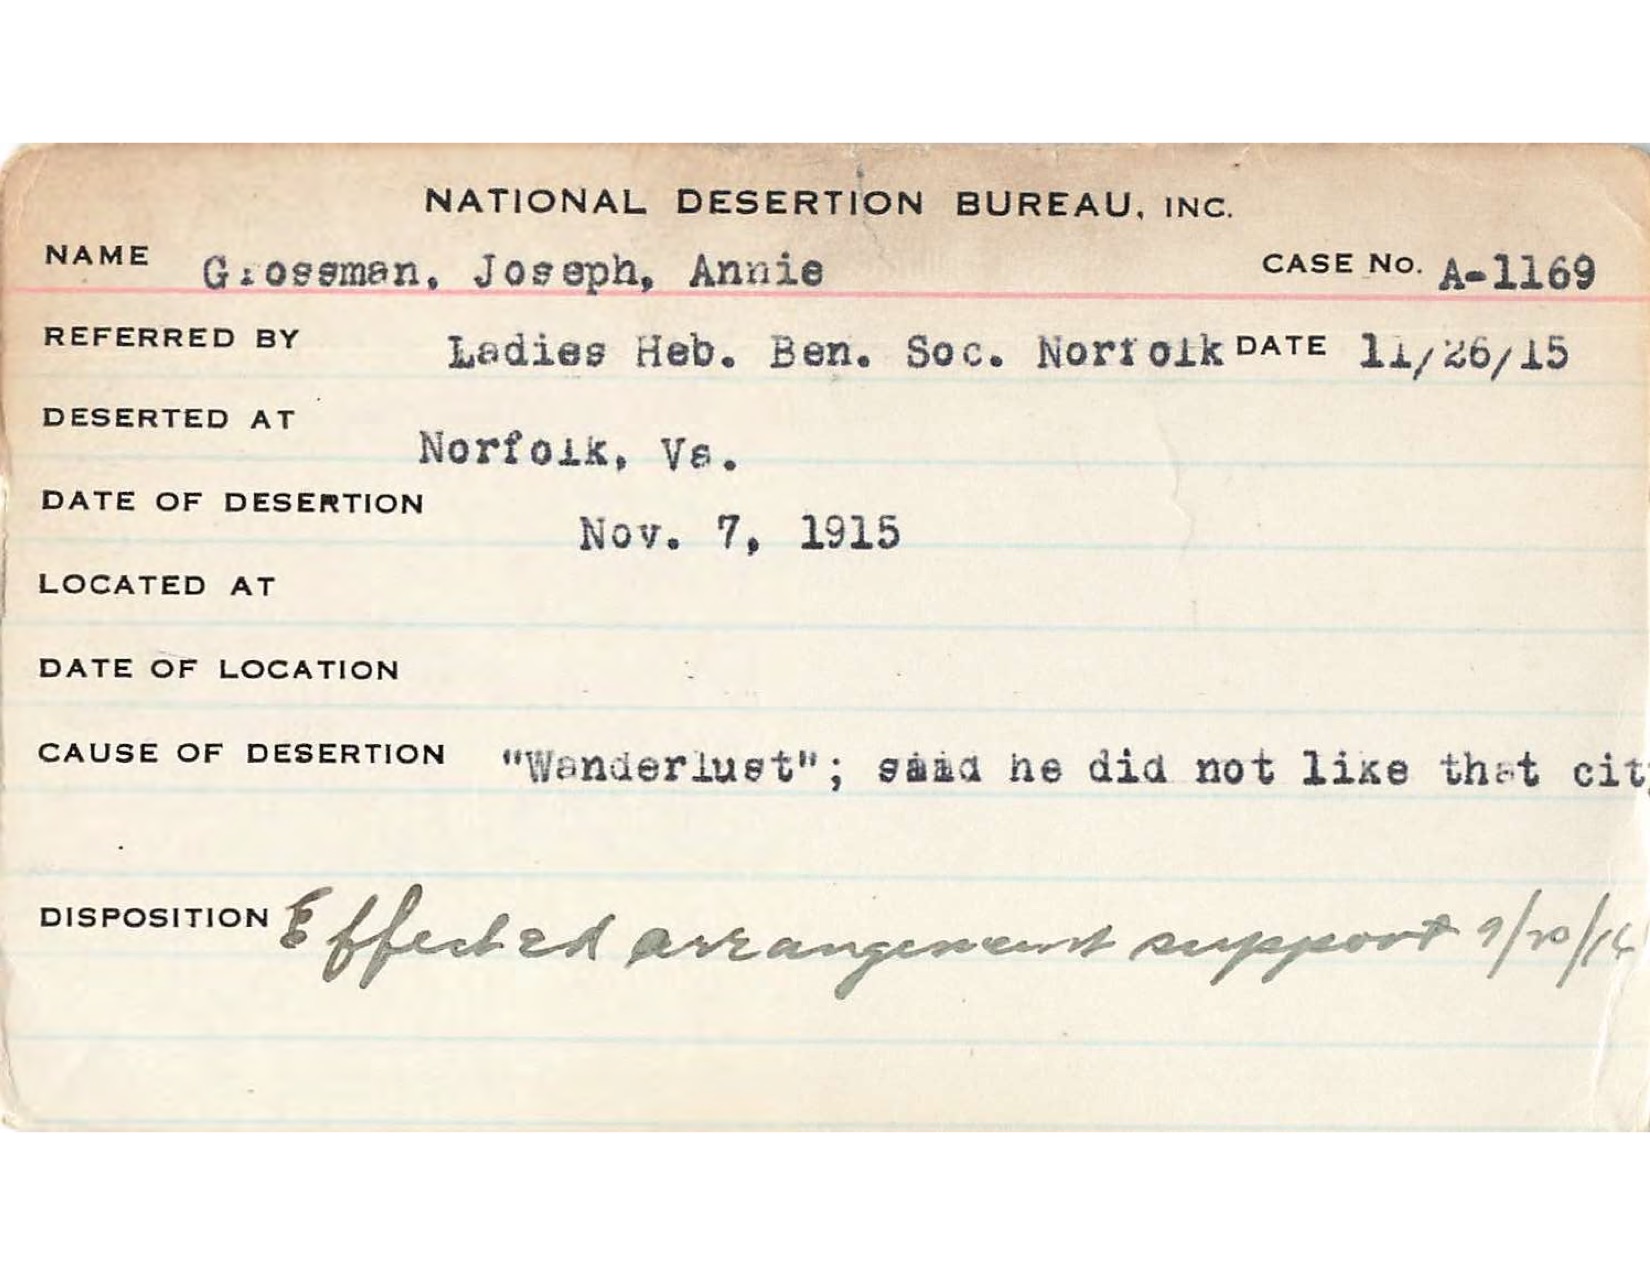 NATIONAL DESERTION BUREAU, INC.
NAME Grossman, Joseph, Annie CASE No. A-1169
REFERRED BY Ladies Heb. Ben. Soc. Norfolk DATE 11/26/15
DESERTED AT Norfolk, Va.
DATE OF DESERTION Nov. 7, 1915
LOCATED AT
DATE OF LOCATION
CAUSE OF DESERTION "Wanderlust"; said he did not like that city
DISPOSITION Effected arrangement support 9/20/16